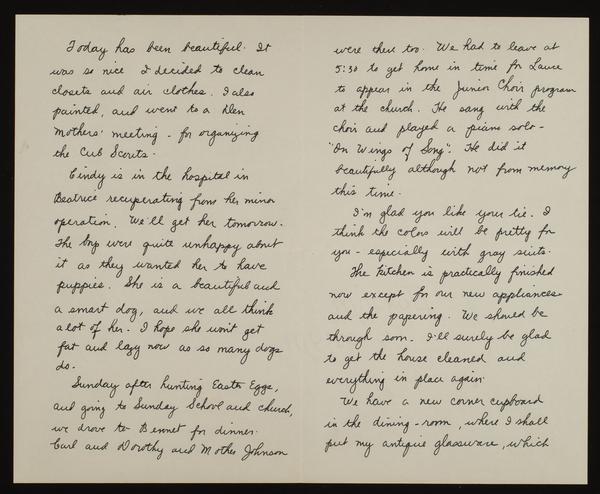 Today has been beautiful. It
was so nice I decided to clean
closets and air clothes. I also
painted, and went to a Den
Mothers' meeting - for organizing
the Cub Scouts.
Cindy is in the hospital in
Beatrice recuperating from her minor
operation. We'll get her tomorrow.
The boys were quite unhappy about
it as they wanted her to have
puppies. She is a beautiful and
a smart dog, and we all think
a lot of her. I hope she won't get
fat and lazy now as so many dogs
do.
Sunday after hunting Easter Eggs,
and going to Sunday School and church,
we drove to Bennet for dinner.
Carl and Dorothy and Mother Johnson
were there too. We had to leave at
5:30 to get home in time for Lance
to appear in the Junior Choir program
at the church. He sang with the
choir and played a piano solo -
"On Wings of Song". He did it
beautifully although not from memory
this time.
I'm glad you like your tie. I
think the colors will be pretty for
you - especially with gray suits.
The kitchen is practically finished
now except for our new appliances
and the papering. We should be
through soon. I'll surely be glad
to get the house cleaned and
everything in place again.
We have a new corner cupboard
in the dining-room, where I shall
put my antique glassware, which